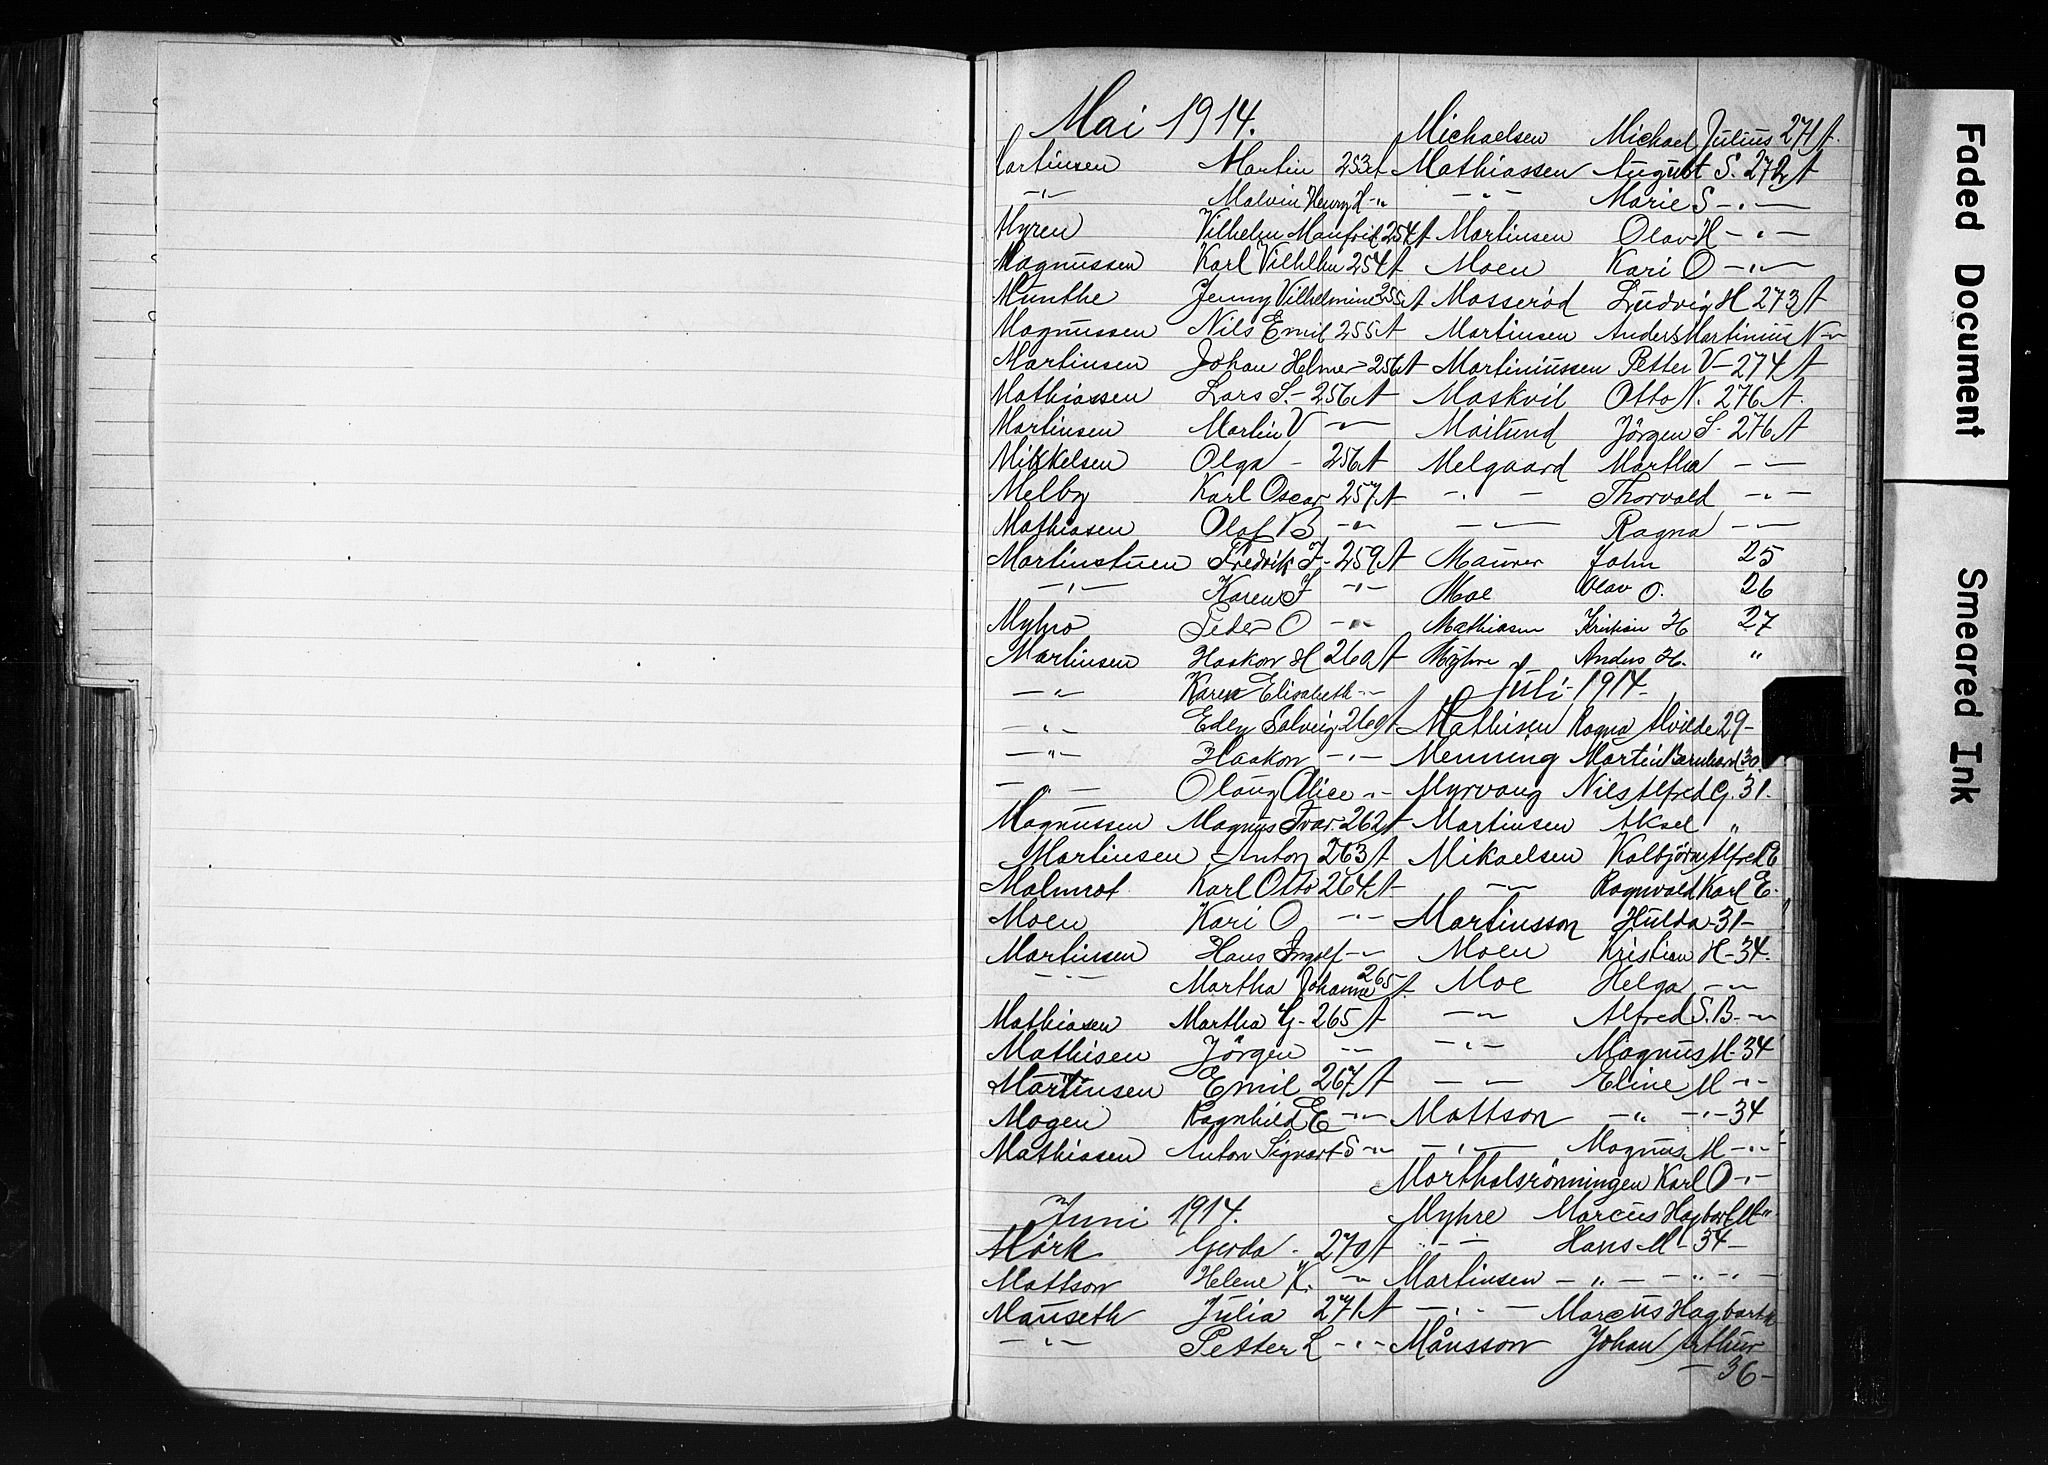 Mai 1914.
Martinsen Martin 253 A
-"- Malvin Henry L -"-
Myren Vilhelm Manfrid 254 A
Magnussen Karl Vilhelm 254 A
Munthe Jenny Vilhelmine 255 A
Magnussen Nils Emil 255 A
Martinsen Johan Helmer - 256 A
Mathiassen Lars S. - 256 A
Martinsen Martin V -"-
Mikkelsen Olga - 256 A
Melby Karl Oscar 257 A
Mathiasen Olaf B -"-
Martinstuen Fredrik F. - 259 A
-"- Karen F -"-
Myhro Peder O -"-
Martinsen Haakon H 260 A
-"- Karen Elisabeth -"-
-"- Edly Solveig 260 A
-"- Haakon -"-
-"- Olaug Alice -"-
Magnussen Magnus Ivar. 262 A
Martinsen Anton 263 A
Malmrot Karl Otto 264 A
Moen Kari O -"-
Martinsen Hans Ingolf -"-
-"- Martha Johanne 265 A.
Mathiasen Martha G - 265 A
Mathisen Jörgen -"-
Martinsen Emil 267 A
Mogen Ragnhild E -"-
Mathiasen Anton Sigvart S -"-
Juni 1914.
Mörk Gerda - 270 A
Mattson Helene K. -"-
Mauseth Julia 271 A
-"- Petter L -"-
Michaelsen Michael Julius 271 A.
Mathiassen August S. 272 A
-"- Marie S -"-
Martinsen Olav H -"-
Moen Kari O -"-
Mosseröd Ludvig H 273 A
Martinsen Anders Martinius N -"-
Martiniussen Petter V - 274 A
Moskvil Otto N. 276 A.
Maitund Jörgen S - 276 A
Melgaard Martha -"-
-"- Thorvald -"-
-"- Ragna -"-
Maurer John 25
Moe Olav O. 26
Mathiasen Kristian H 27
Myhre Anders H. "
Juli 1914
Mathisen Ragna Alvilde 29 -
Menning Martin Bernhard 30
Myrvang Nils Alfred G. 31 -
Martinsen Aksel "
Mikaelsen Kolbjörn Alfred E
-"- Ragnvald Karl E.
Martinsson Hulda - 31 -
Moen Kristian H - 34.
Moe Helga -"-
-"- Alfred S. B. -"-
-"- Magnus M - 34
-"- Eline M -"-
Mattson -"- -"- 34
-"- Magnus M -"-
Martholsrönningen Karl O -"-
Myhre Marcus Hagbart M -"-
-"- Hans M - 34 -
Martinsen -"- -"- -"-
-"- Marcus Hagbarth
Månsson Johan Arthur
- 36 -
Faded Document
Smeared Ink